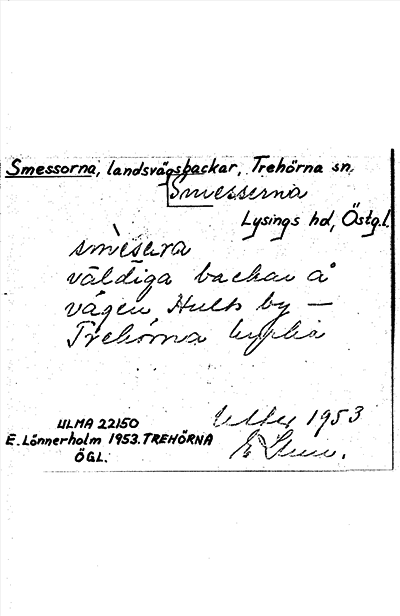 Smessorna, landsvägsbackar, Trehörna sn.
Smesserna
Lysings hd, Östg.l.
smèsəra
väldiga backar å
vägen, Hults by —
Trehörna kyrka
1953
ULMA 22150
E. Lönnerholm 1953. TREHÖRNA
ÖGL.